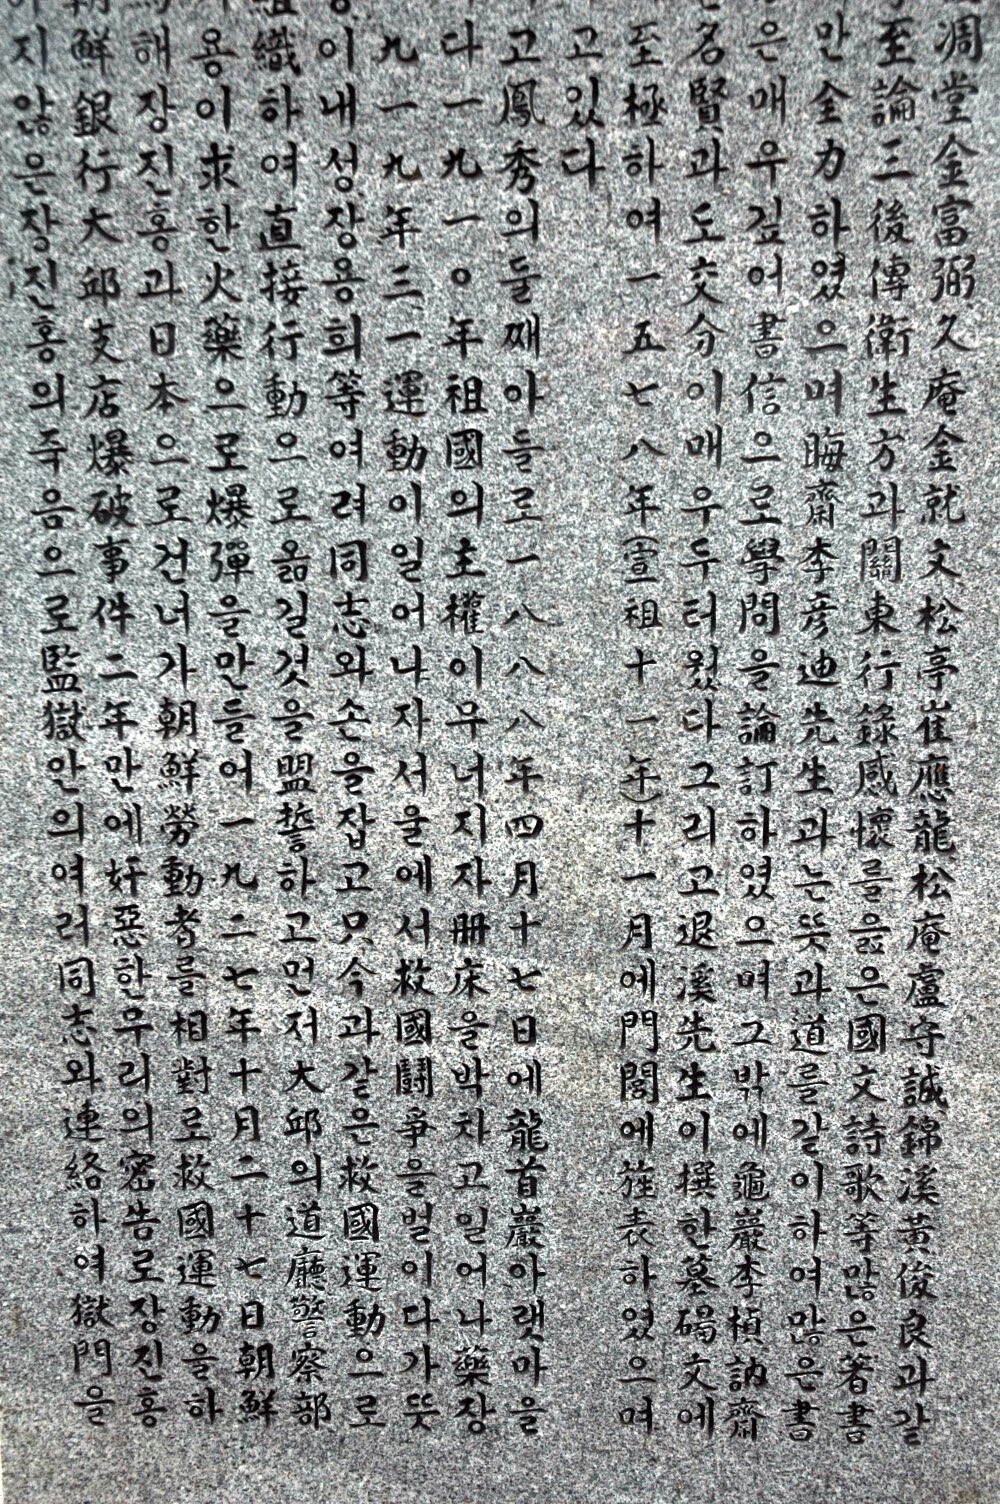 凋堂金富弼久庵金就文松亭崔應龍松庵盧守誠錦溪黃俊良과같
至論三後傳衛生方과關東行錄感懷를읊은國文詩歌等많은著書
만全力하였으며晦齋李彦迪先生과는뜻과道를같이하여많은書
은매우깊어書信으로學問을論訂하였으며그밖에龜巖李楨訥齋
名賢과도交分이매우두터웠다그리고退溪先生이撰한墓碣文에
至極하여一五七八年(宣祖十一年)十一月에門閭에旌表하였으며
고있다
고鳳秀의둘째아들로一八八八年四月十七日에龍首巖아랫마을
다一九一〇年祖國의主權이무너지자册床을박차고일어나藥장
九一九年三一運動이일어나자서울에서救國鬪爭을벌이다가뜻
이내성장용희等여려同志와손을잡고只今과같은救國運動으로
織하여直接行動으로옮길것을盟誓하고먼저大邱의道廳警察部
용이求한火藥으로爆彈을만들어一九二七年十月二十七日朝鮮
해장진홍과日本으로건너가朝鮮勞動者를相對로救國運動을하
鮮銀行大邱支店爆破事件二年만에奸惡한무리의密告로장진홍
지않은장진홍의죽음으로監獄안의여러同志와連絡하여獄門을